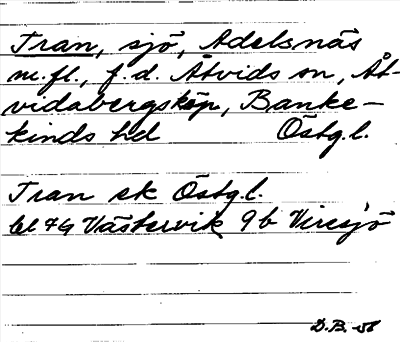 Tran, sjö, Adelsnäs
m.fl., f.d. Åtvids sn, Åt-
vidabergsköp, Banke-
kinds hd Östg.l.
Tran ek Östg.l.
bl 74 Västervik 9b Viresjö
D.B. -56